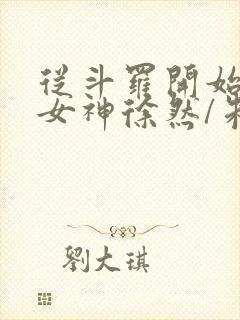 從斗羅開始
女神徐然/
劉大琪